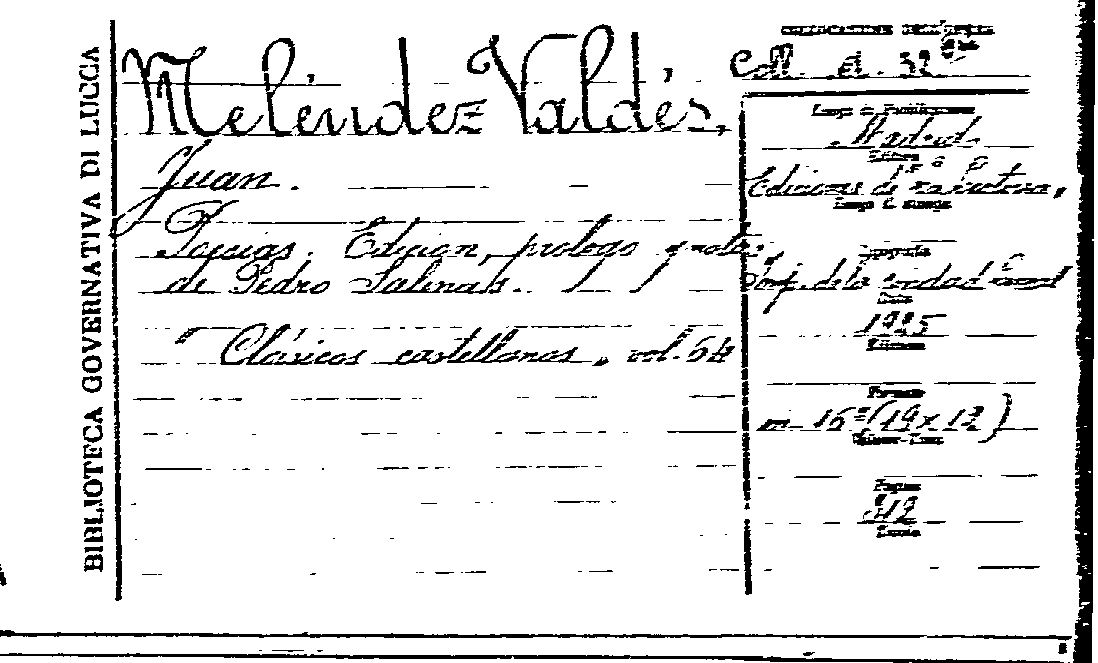 BIBLIOTECA GOVERNATIVA DI LUCCA
Meléndez Valdés,
Juan.
Poesias. Edicion, prologo y notas
de Pedro Salinas.
"Clásicos castellanos, vol. 64
Coll. A. 52
Luogo di Pubblicazione
Madrid
Editore
Ediciones de "La Lectura",
Luogo di stampa
Tipografia
Imp. de la Ciudad Lineal
Data
1925
Edizione
Formato
m- 16º (19 x 12)
Volume-Tomo
Pagine
312